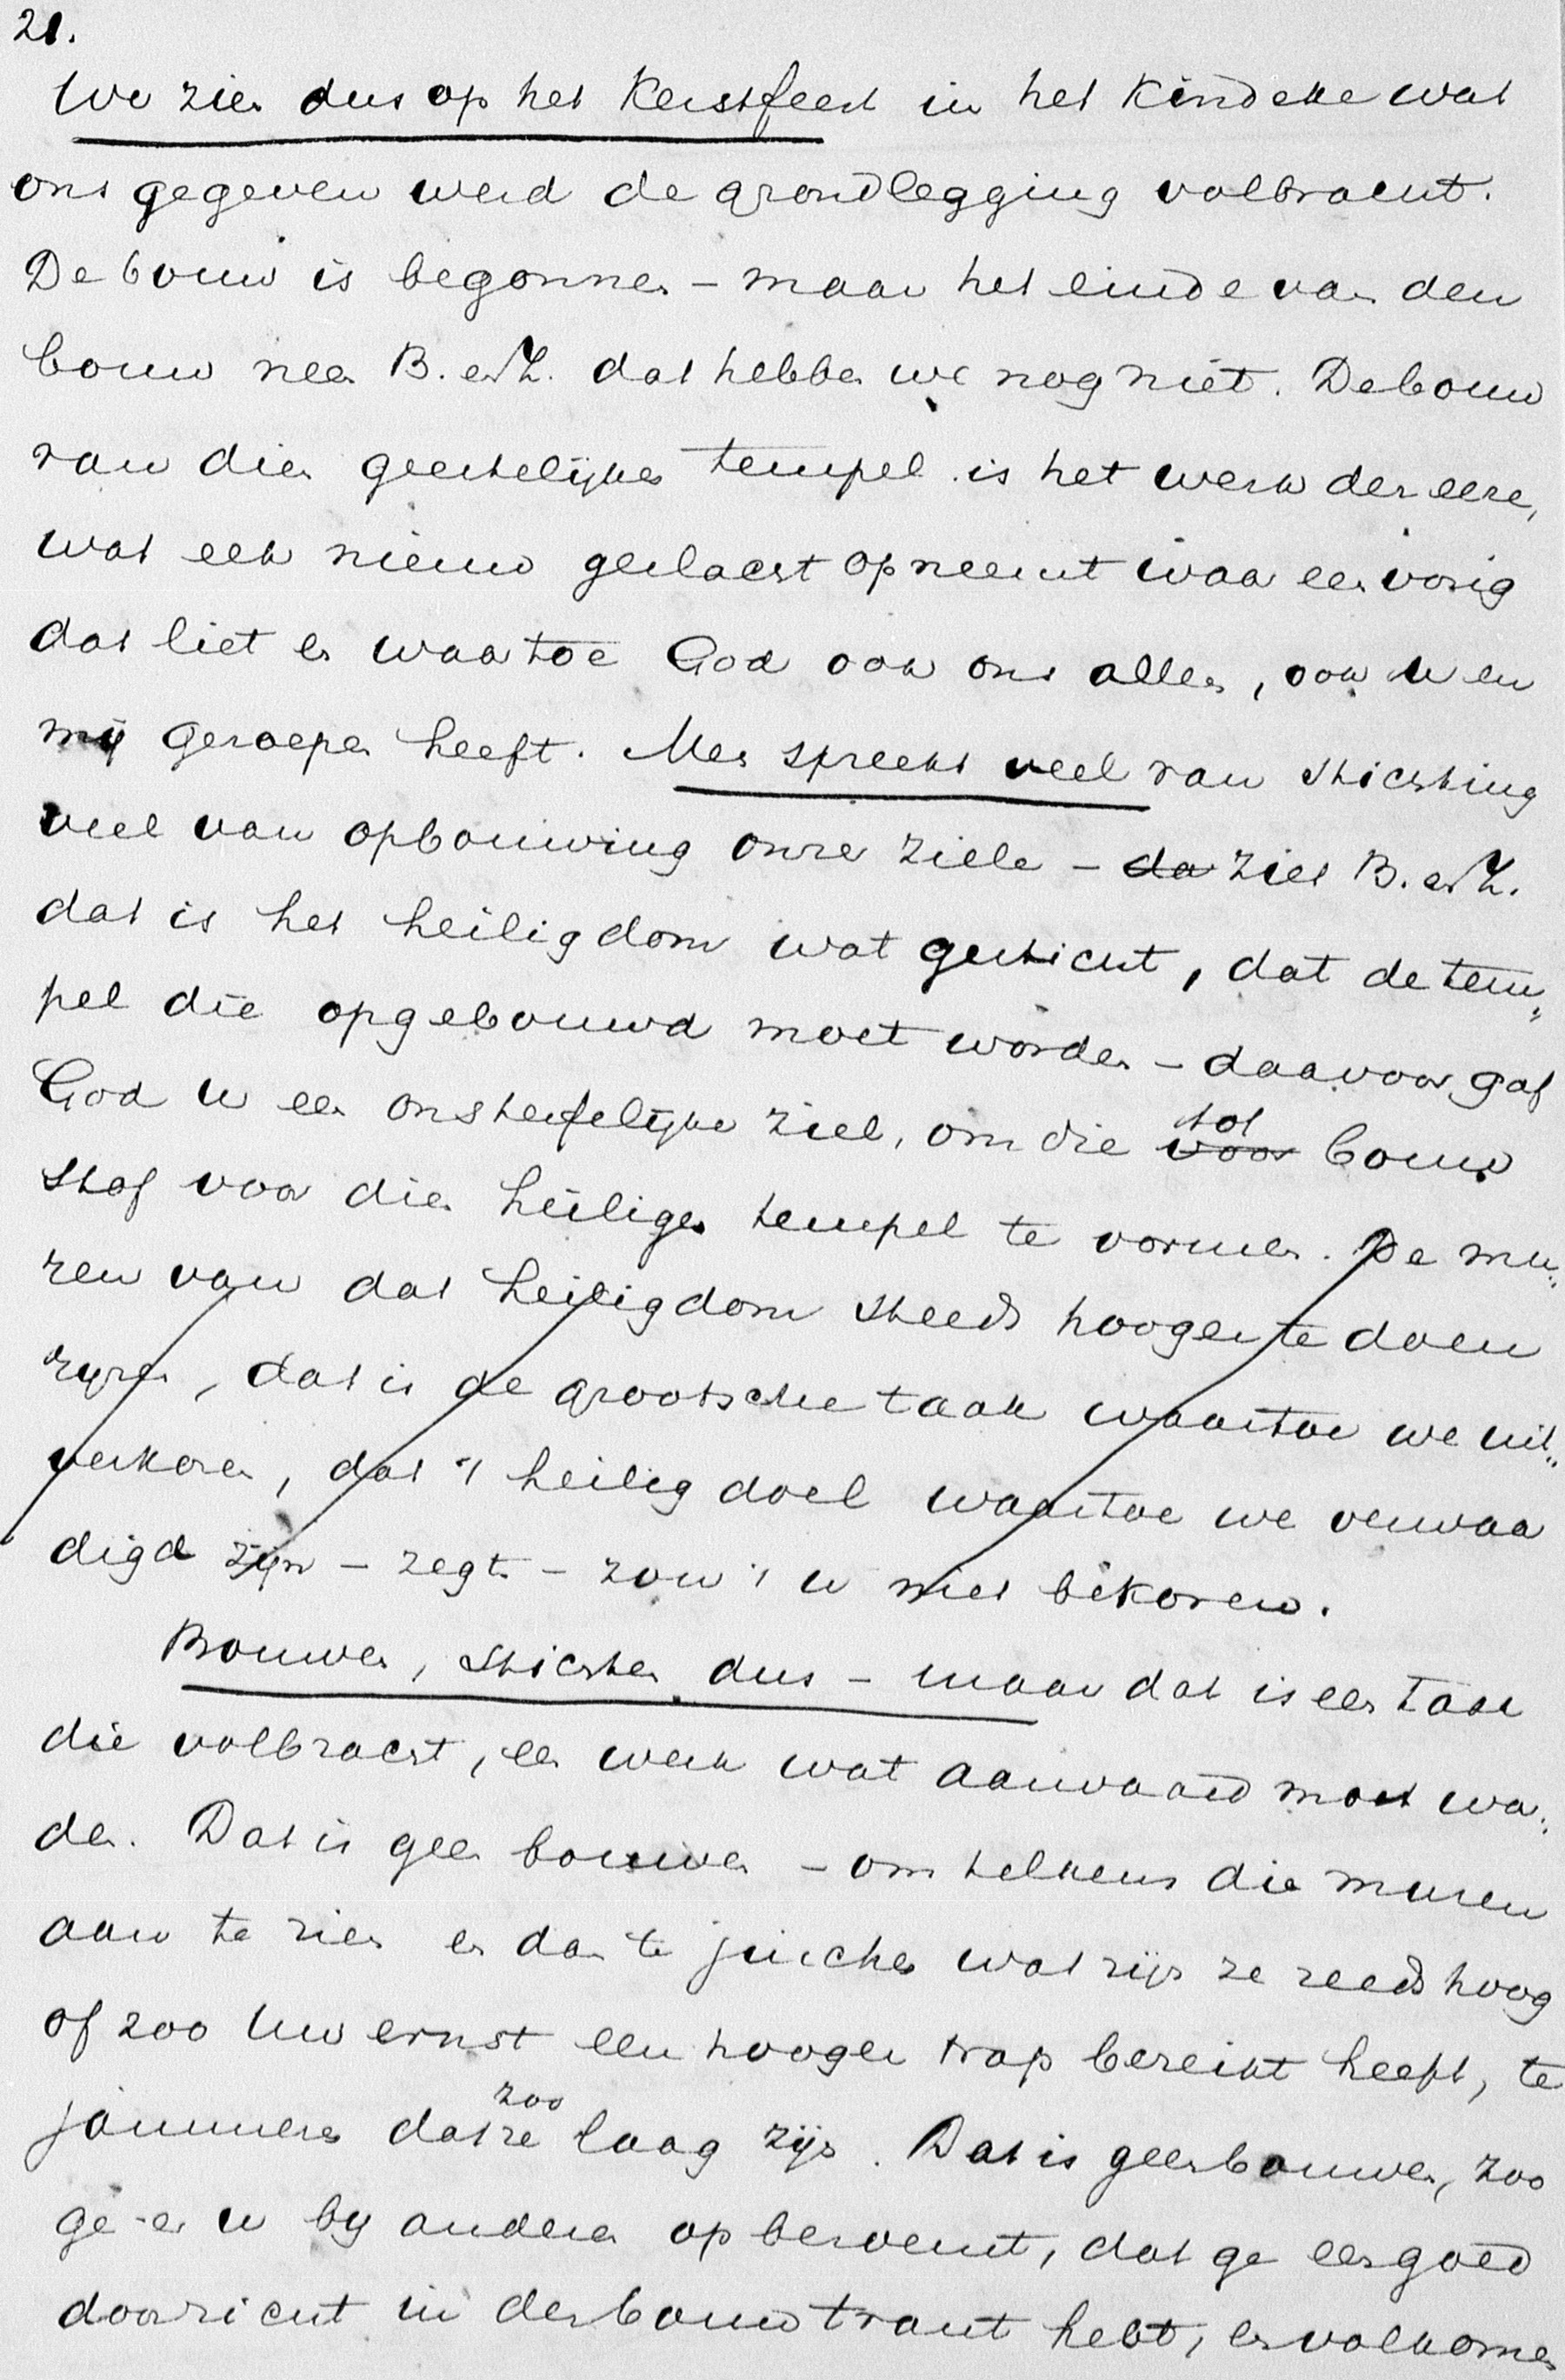 21.
We zien dus op het Kerstfeest in het Kindeke wat
ons gegeven werd de grondlegging volbracht.
De bouw is begonnen – maar het einde van den
bouw neen B. en Z. dat hebben we nog niet. De bouw
van dien geestelijken tempel is het werk der eere,
wat een nieuw geslacht opneemt waar een vorig
dat liet en waartoe God ook ons allen, ook u en
mij geroepen heeft. Men spreekt veel van stichting
veel van opbouwing onzer ziele – da ziet B. en Z.
dat is het heiligdom wat gesticht, dat de tem„
pel die opgebouwd moet worden – daarvoor gaf
God u een onsterfelijke ziel, om die voor tot bouw
stof voor dien heiligen tempel te vormen. De mu„
ren van dat heiligdom steeds hooger te doen
rijzen, dat is de grootsche taak waartoe we uit„
verkoren, dat 't heilig doel waartoe we verwaar
digd zijn – zegt – zou 't u niet bekoren.
Bouwen, stichten dus – maar dat is een taak
die volbracht, een werk wat aanvaard moet wor„
den. Dat is geen bouwen – om telkens die muren
aan te zien en dan te juichen wat zijn ze reeds hoog
of zoo Uw ernst een hooger trap bereikt heeft, te
jammeren dat ze zoo laag zijn. Dat is geen bouwen, zoo
ge er u bij anderen op beroemt, dat ge een goed
doorzicht in den bouwtrant hebt, en volkomen